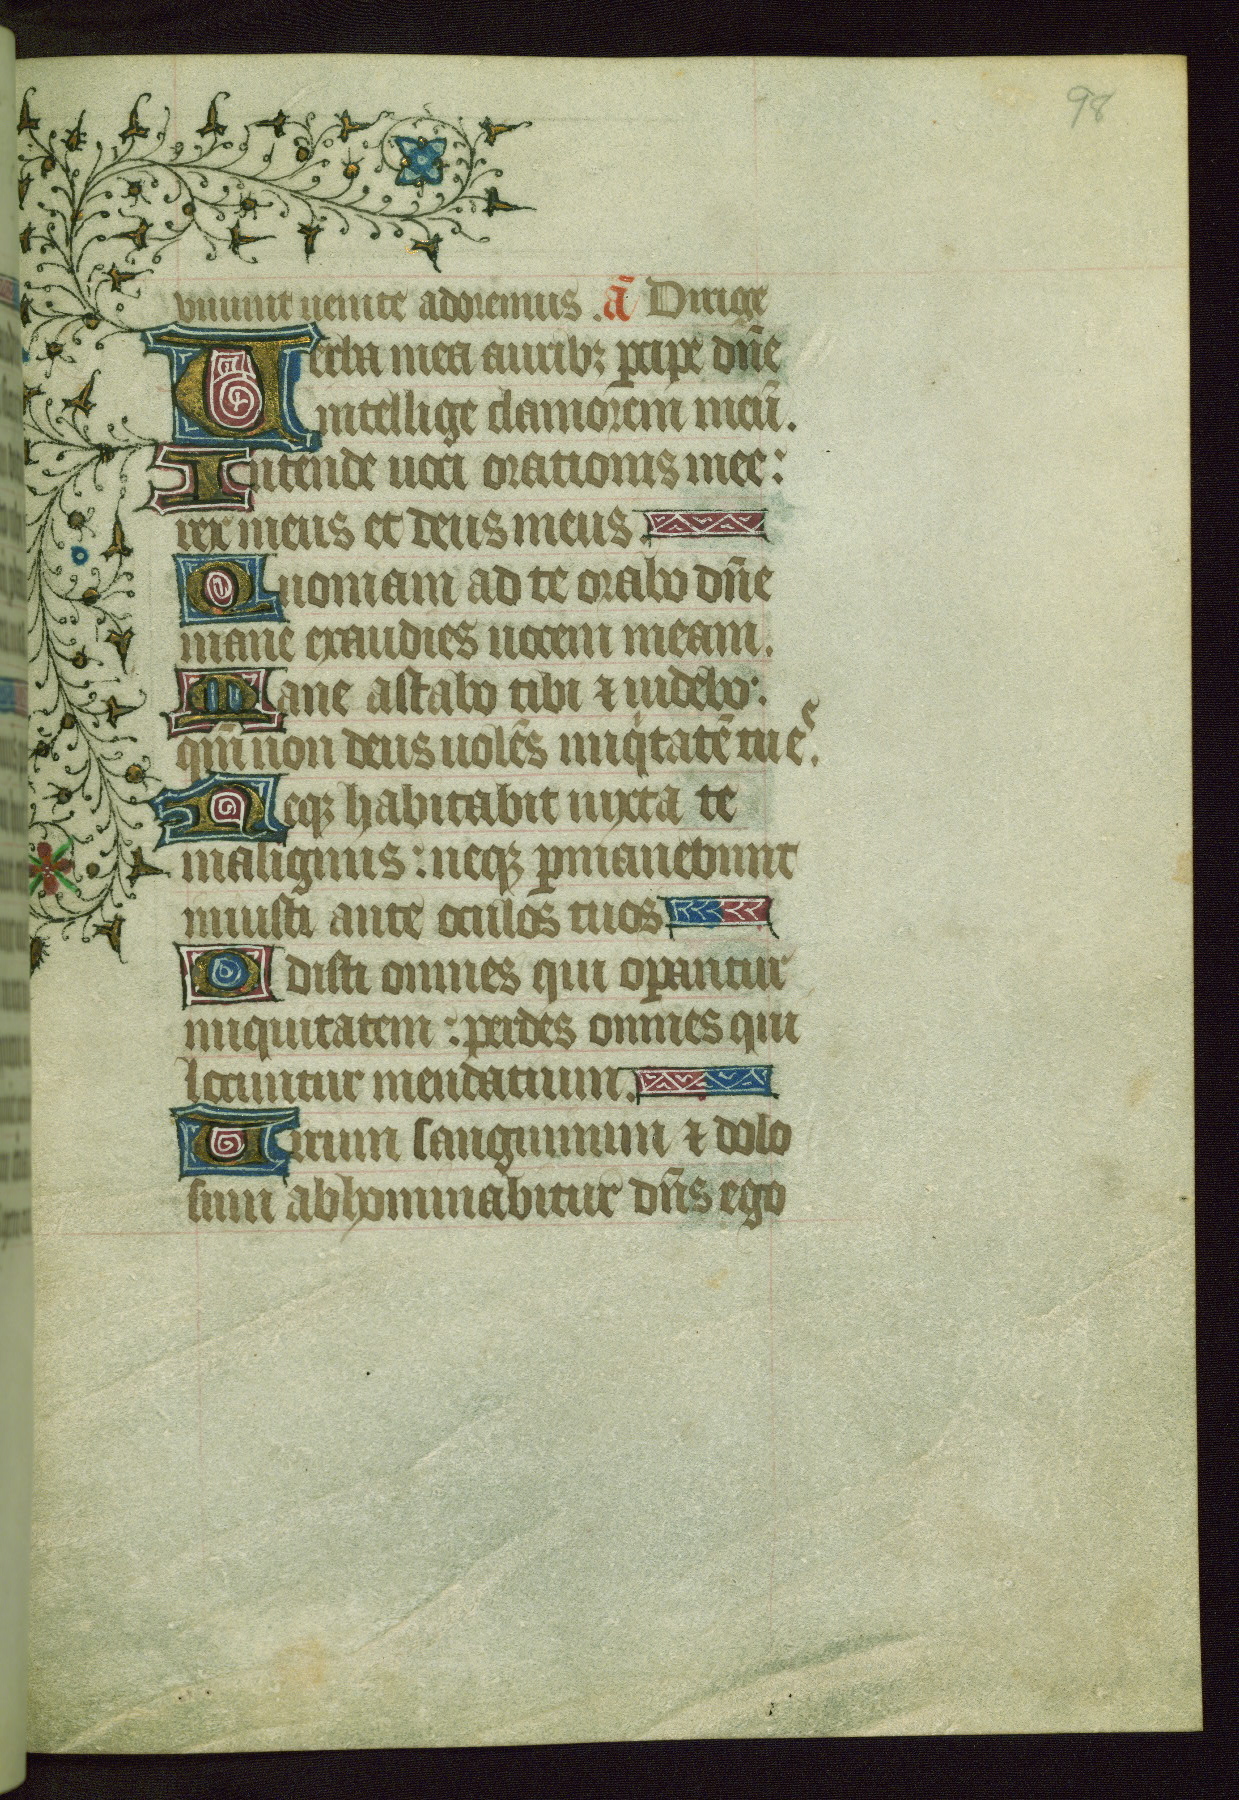 98
viuunt uenite adoremus . a̅ Dirige
Uerba mea aurib⁊ ꝑcipe dn̄e
intellige clamorem meū.
Intende uoci orationis mee :
rex meus et deus meus.
Quoniam ad te orabo dn̄e
mane exaudies uocem meam.
Mane astabo tibi ⁊ uidebo :
qm̄ non deus uolēs iniqͥtatē tu es.
Neqꝫ habitabit iuxta te
malignus : neqꝫ ꝑmanebunt
iniusti ante oculos tuos.
Odisti omnes qui oꝑantur
iniquitatem : perdes omnes qui
locuntur mendatium.
Uirum sanguinum ⁊ dolo
sum abhominabitur dn̄s ego